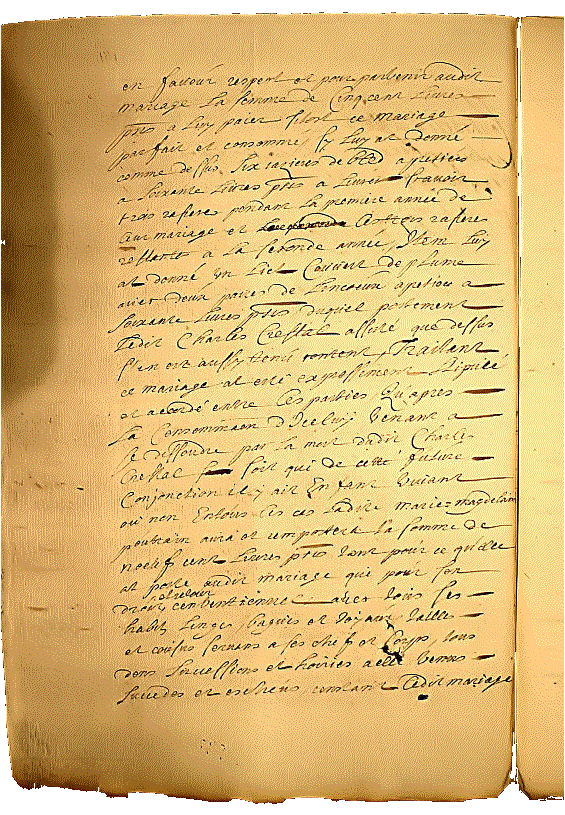 en faveur respect et pour parvenir audit
mariage La somme de Cinq cent Livres
ptis a Luy paier sitost ce mariage
parfait et consommé, Sy Luy at donné
comme dessus, Six rasieres de bled apretiees
a Soixante Livres ptis a Livrer Scavoir
trois rasieres pendant La premiere année de
Leur mariage et Les autres rasiere
restants a La seconde année, Item Luy
at donné Un Lict Couvert de plume
avecq deux paires de Linceux apretiez a
Soixante Livres ptis duquel portement
Ledit Charles Crestal assisté que dessus
s'en est aussy tenu content, Traitant
ce mariage at esté expressement stipulé
et accordé entre Les parties Qu'apres
La Consommaon d'Iceluy Venant a
se dissoudre par La mort dudit Charles
Crestal soit qui de cette future
Conjonction il y ait Enfant Vivant
ou non Entous ces cas Ladite marie magdelaine
poutrain aura et remportera La somme de
noeuf cent Livres ptis tant pour ce qu'elle
at porté audit mariage que pour son
droit conventionnel avecq tous ses
et retour
habits Linges, bagues et Joyaux taillez
et cousus servans a ses chef et Corps, tous
dons successions et hoiries a elle Venus
succedes et escheus constant Ledit mariage